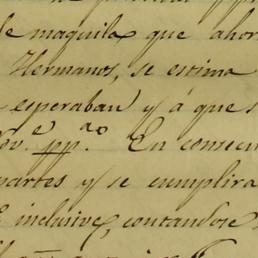 de maquila que ahor
Hermanos, se estima
esperaban y á que s
ov.e pp.do En consecu
partes y se cumplira
inclusive, contandose